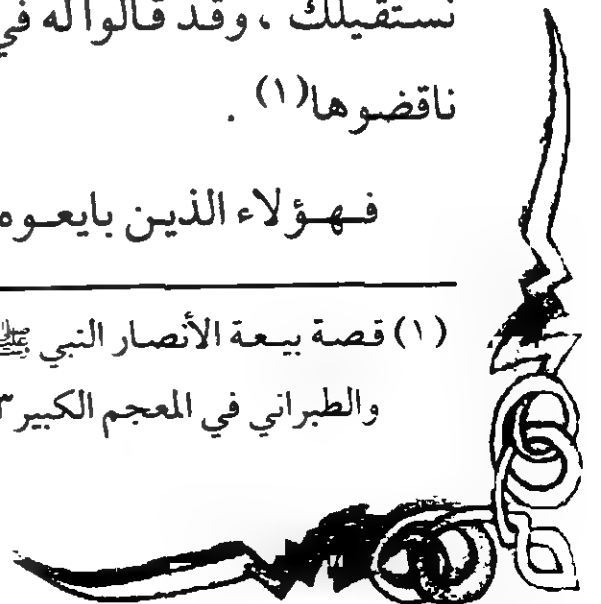 نستقيلك ، وقد قالوا له في
ناقضوها(١) .
فـهـؤلاء الذيـن بايعـوه
(١) قصة بيـعـة الأنصار النبي ﷺ
والطبراني في المعجم الكبير ٣